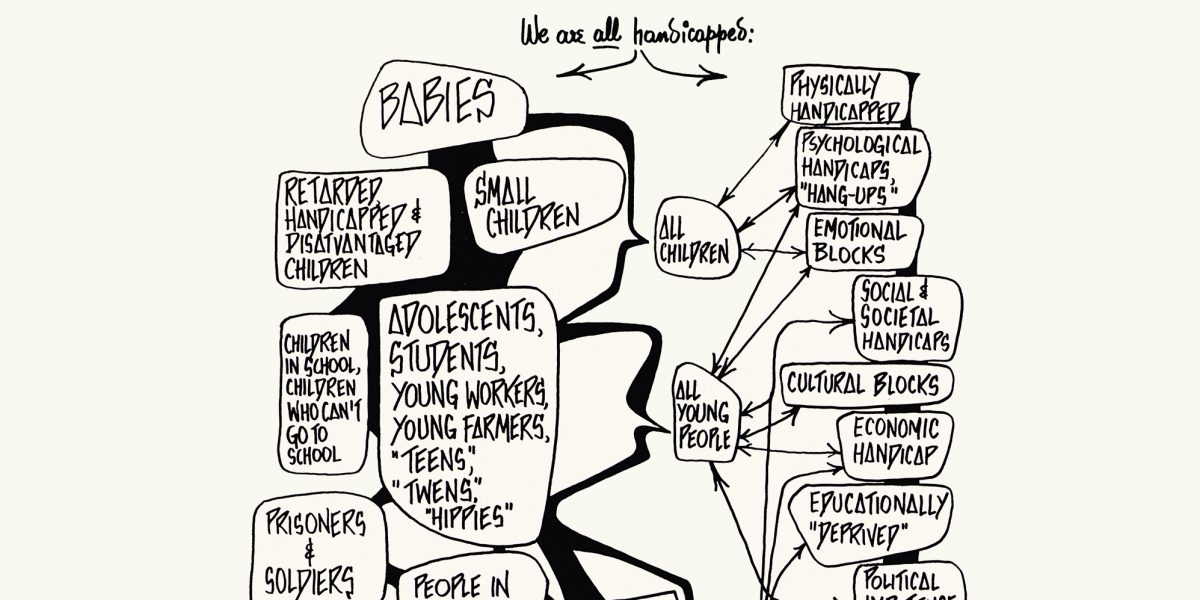 We are all handicapped:
BABIES
RETARDED,
HANDICAPPED &
DISATVANTAGED
CHILDREN
SMALL
CHILDREN
CHILDREN
IN SCHOOL,
CHILDREN
WHO CAN'T
GO TO
SCHOOL
ADOLESCENTS,
STUDENTS,
YOUNG WORKERS,
YOUNG FARMERS,
"TEENS,"
"TWENS,"
"HIPPIES"
PRISONERS
&
SOLDIERS
PEOPLE IN
ALL
CHILDREN
ALL
YOUNG
PEOPLE
PHYSICALLY
HANDICAPPED
PSYCHOLOGICAL
HANDICAPS,
"HANG-UPS"
EMOTIONAL
BLOCKS
SOCIAL &
SOCIETAL
HANDICAPS
CULTURAL BLOCKS
ECONOMIC
HANDICAP
EDUCATIONALLY
"DEPRIVED"
POLITICAL